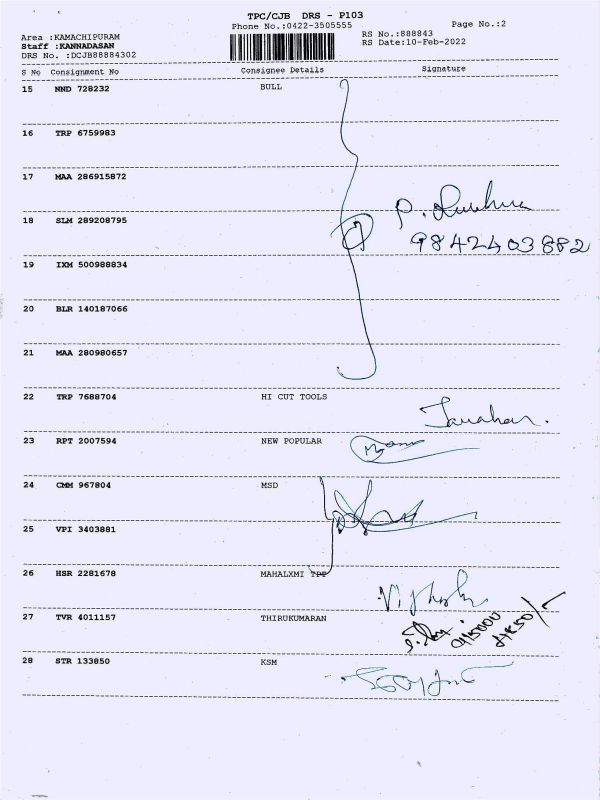 TPC/CJB DRS - P103
Phone No.:0422-3505555
Page No.:2
Area :KAMACHIPURAM
RS No.:888843
Staff :KANNADASAN
RS Date:10-Feb-2022
DRS No. :DCJB88884302
S No Consignment No Consignee Details Signature
15 NND 728232 BULL
16 TRP 6759983
17 MAA 286915872
18 SLM 289208795
9842403882
19 IXM 500988834
20 BLR 140187066
21 MAA 280980657
22 TRP 7688704 HI CUT TOOLS
23 RPT 2007594 NEW POPULAR
24 CMM 967804 MSD
25 VPI 3403881
26 HSR 2281678 MAHALXMI TPP
27 TVR 4011157 THIRUKUMARAN
28 STR 133850 KSM